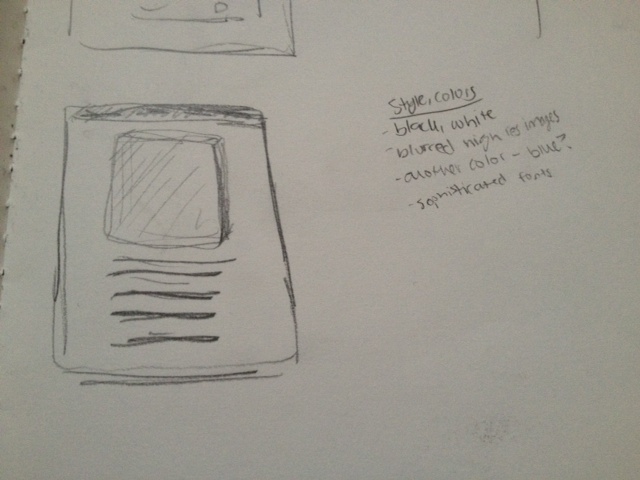 Style, colors
- black, white
- blurred high res images
- another color - blue?
- sophisticated fonts